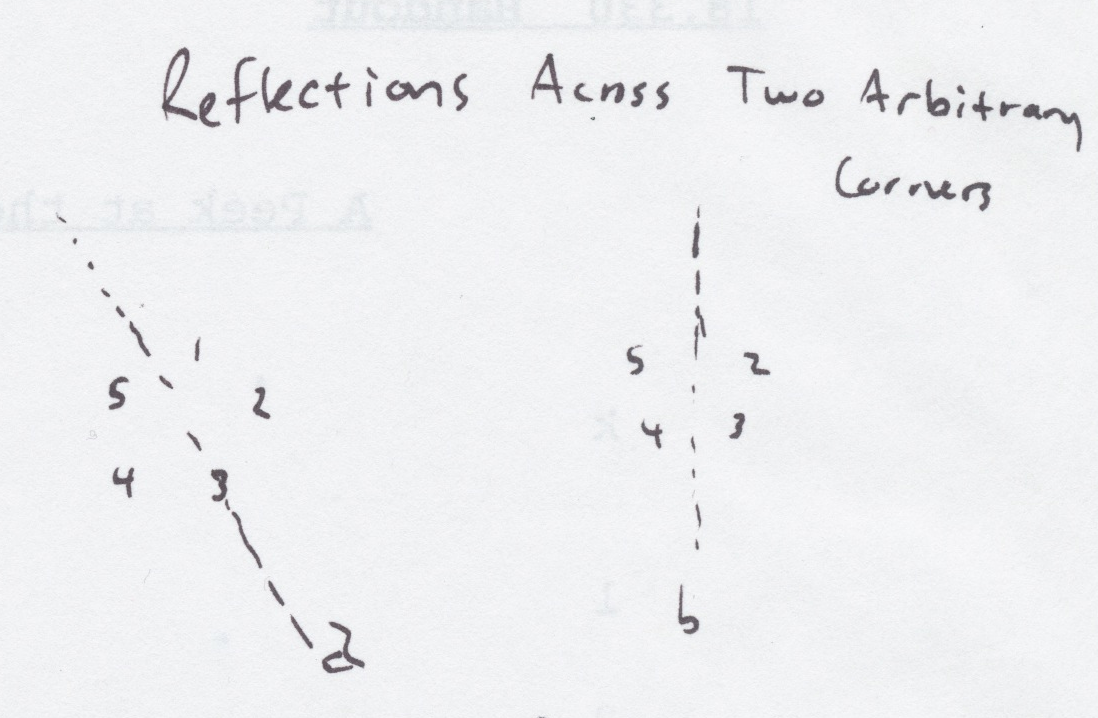 Reflections Across Two Arbitrary
Corners
1
5 2
4 3
a
1
5 2
4 3
b